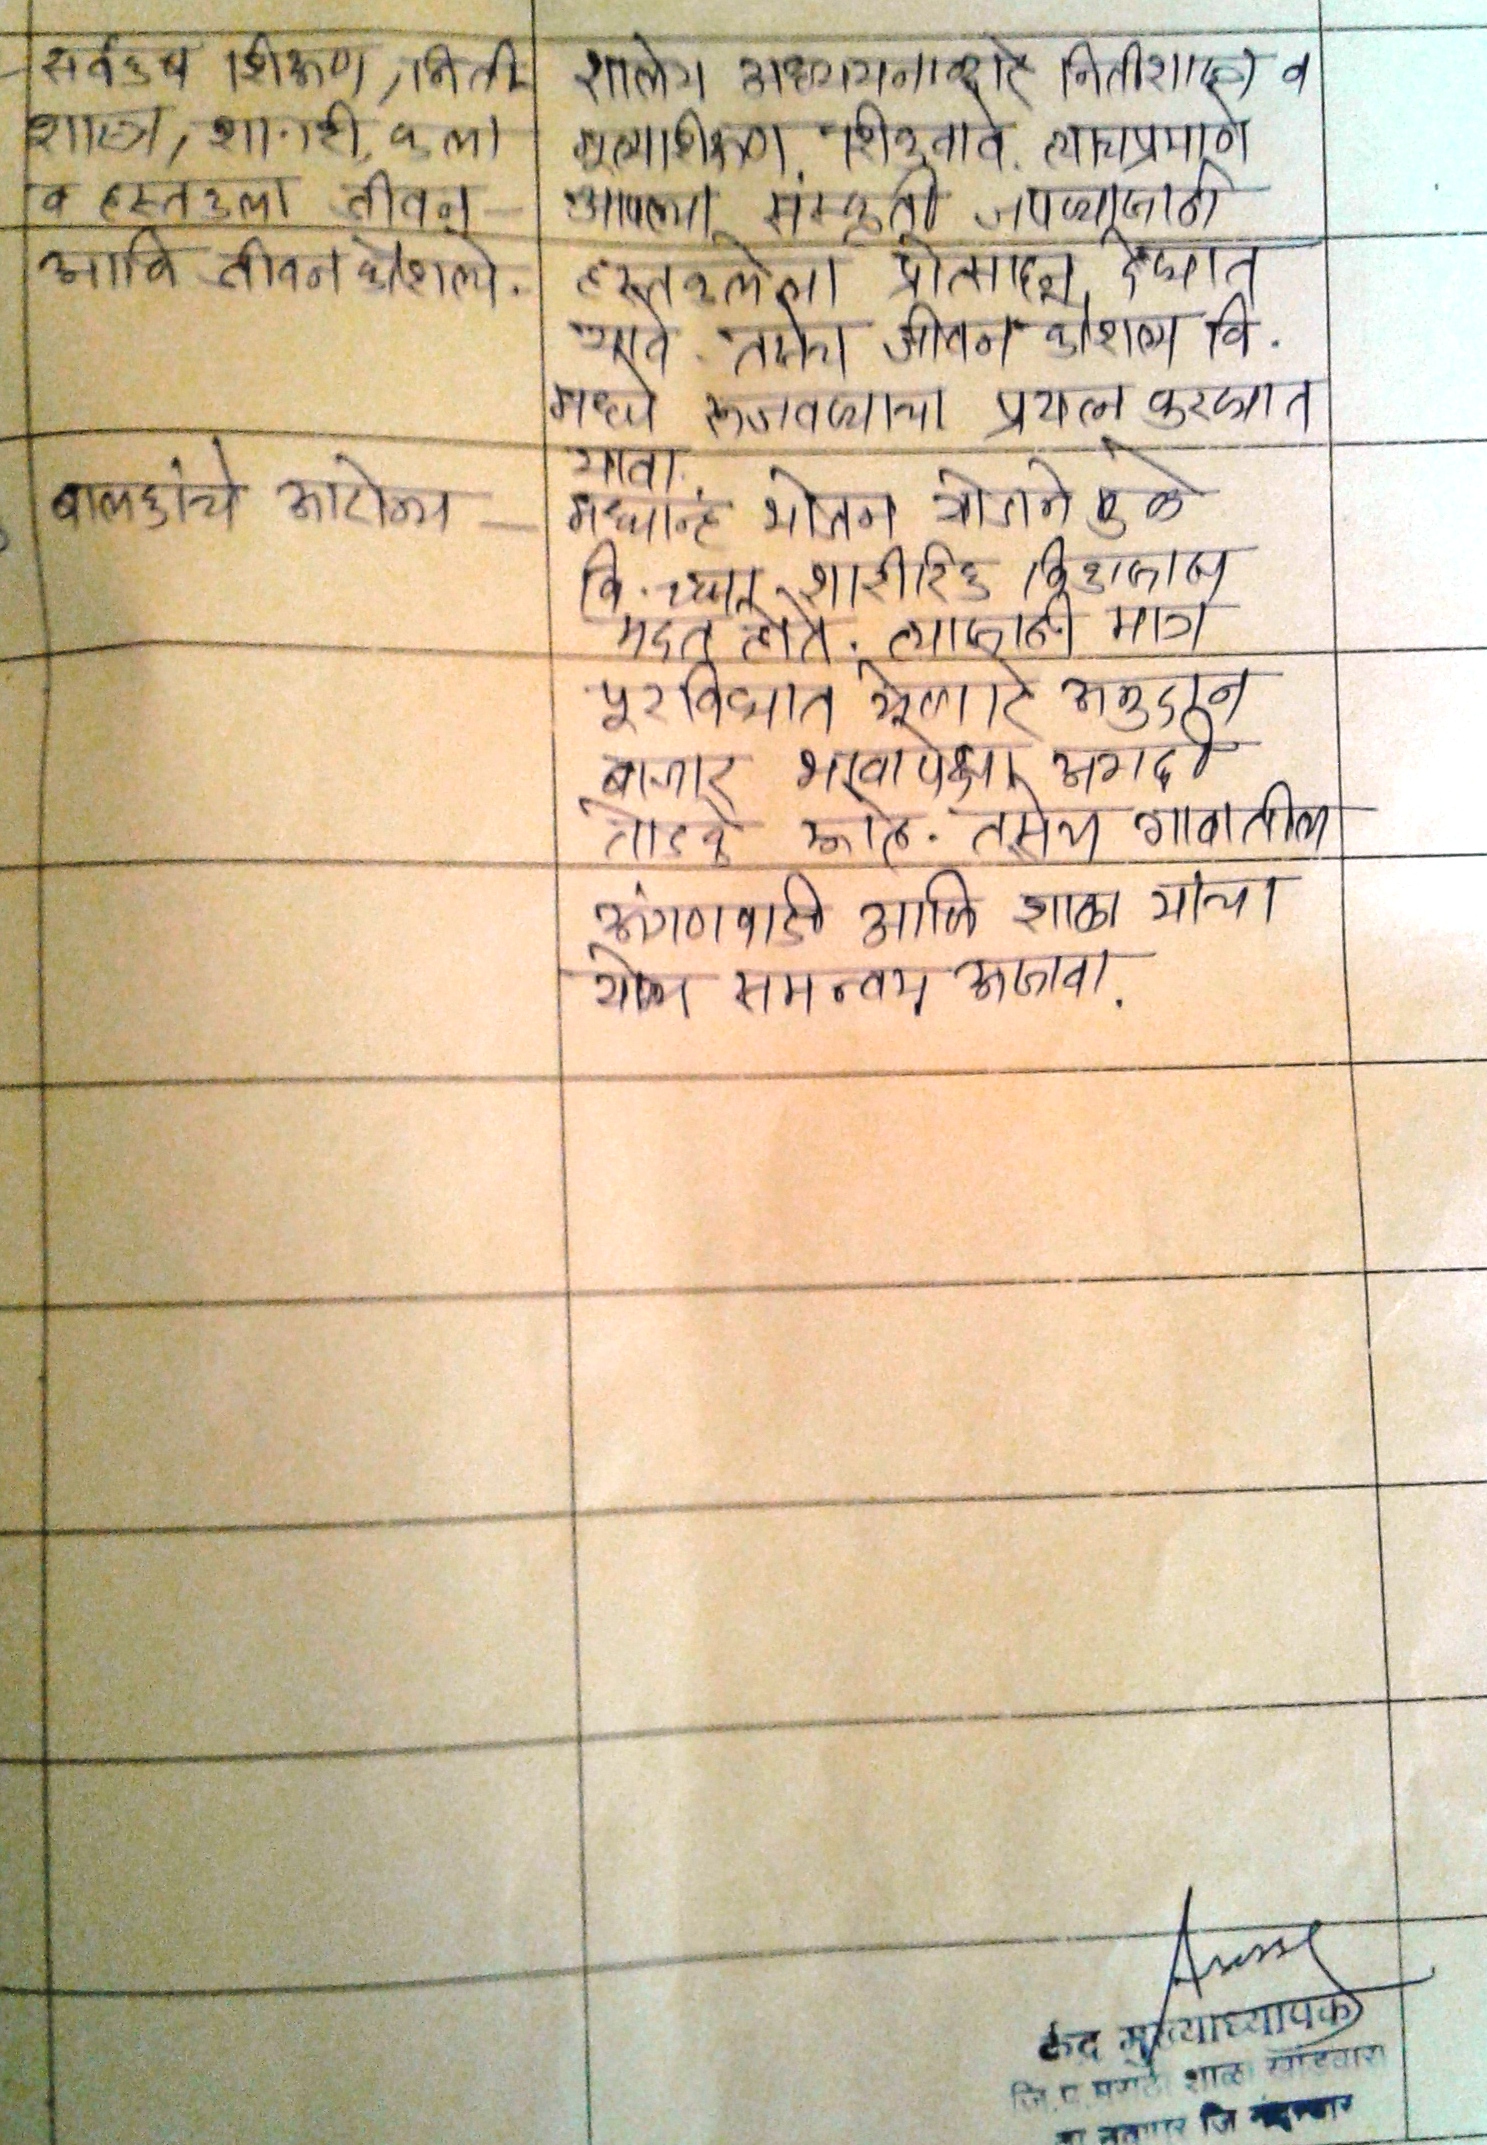 सर्वकष शिक्षण, निती
शास्त्र, शा.शि, कला
व हस्तकला जीवन
आणि जीवन कौशल्ये.
शालेय अध्ययनाव्दारे नितीशास्त्र व
मूल्यशिक्षण शिकवावे. त्याचप्रमाणे
आपल्या संस्कृती जपण्यासाठी
हस्तकलेला प्रोत्साहन देण्यात
यावे. तसेच जीवन कौशल्य वि.
मध्ये रूजवण्याचा प्रयत्न करण्यात
यावा.
बालकांचे आरोग्य —
मध्यान्ह भोजन योजने मुळे
वि.च्या शारीरिक विकासास
मदत होते. त्यासाठी मात्र
पूरविण्यात येणारे अनुदान
बाजार भावापेक्षा अगदी
तोडके आहे. तसेच गावातील
अंगणवाडी आणि शाळा यांचा
योग्य समन्वय असावा.
केंद्र मुख्याध्यापक
जि.प. मराठी शाळा खांडबारा
ता नवापूर जि नंदुरबार